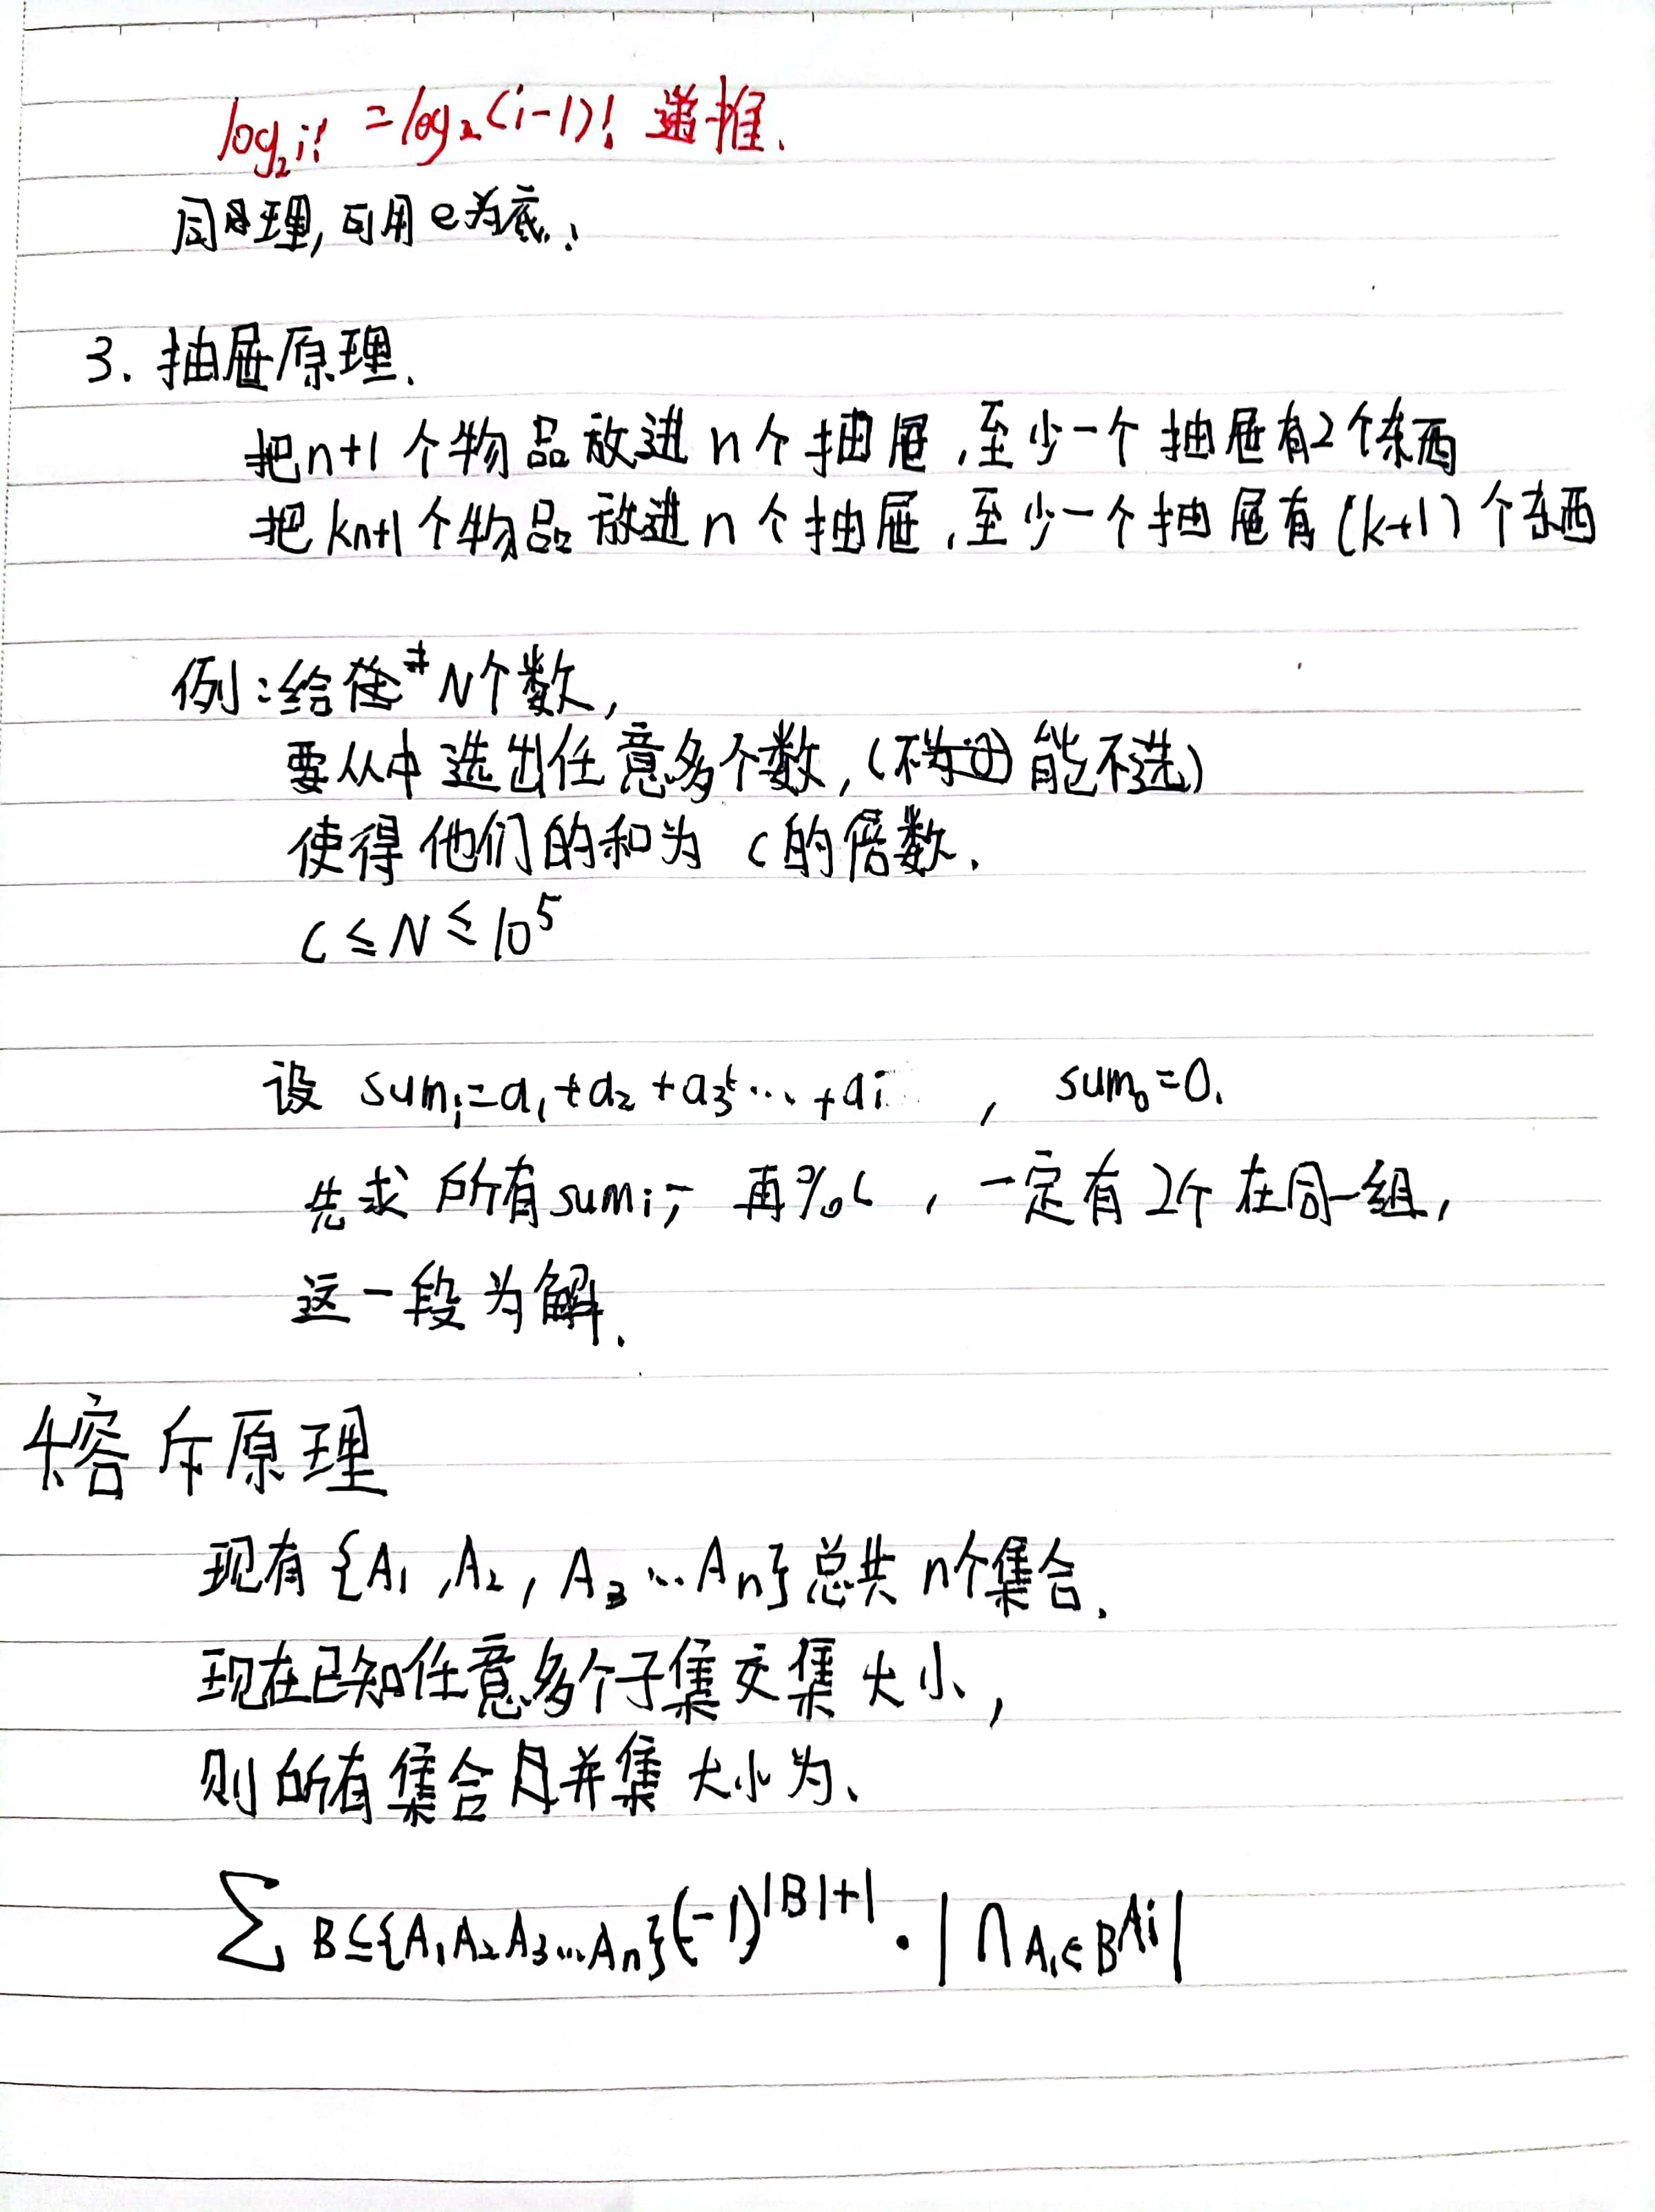 log₂i! = log₂(i-1)! 递推.
同理,可用e为底.
3. 抽屉原理.
把n+1个物品放进n个抽屉,至少一个抽屉有2个东西
把kn+1个物品放进n个抽屉,至少一个抽屉有(k+1)个东西
例:给 N个数,
要从中选出任意多个数,(不能不选)
使得他们的和为 C的倍数.
C ≤ N ≤ 10⁵
设 sumᵢ=a₁+a₂+a₃+...+aᵢ , sum₀=0.
先求所有sumᵢ, 再%C, 一定有2个在同一组,
这一段为解.
4.容斥原理
现有{A₁,A₂,A₃...Aₙ}总共n个集合.
现在已知任意多个子集交集大小,
则所有集合 并集大小为、
∑ B⊆{A₁A₂A₃...Aₙ}(-1)^|B|+1 · |∩Aᵢ∈B Aᵢ|